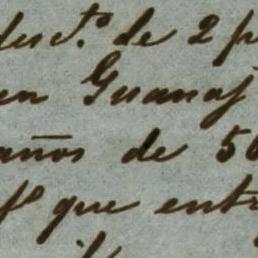 desc.to de 2 p
en Guanaj
años de 50
fs que entr